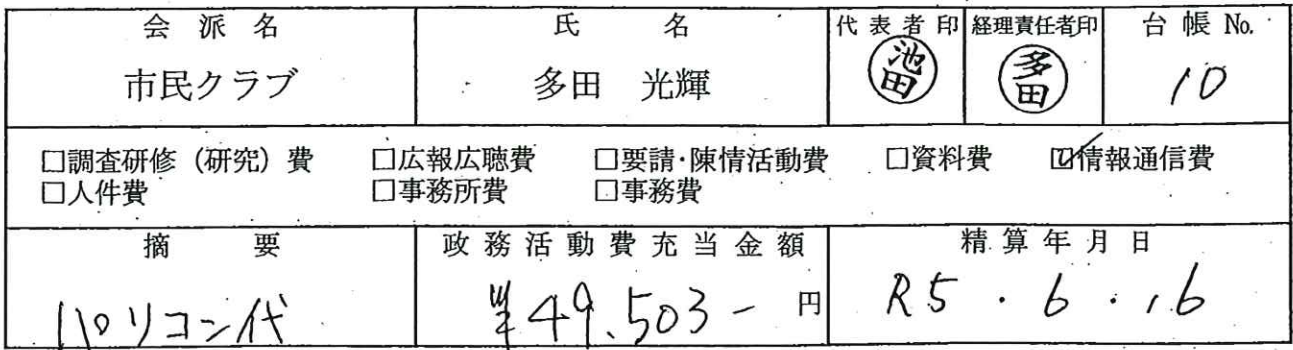 会派名 氏名 代表者印 経理責任者印 台帳No.
市民クラブ 多田 光輝 池田 多田 10
□調査研修(研究)費 □広報広聴費 □要請・陳情活動費 □資料費 ☑情報通信費
□人件費 □事務所費 □事務費
摘要 政務活動費充当金額 精算年月日
パソコン代 ¥49,503- 円 R5・6・16